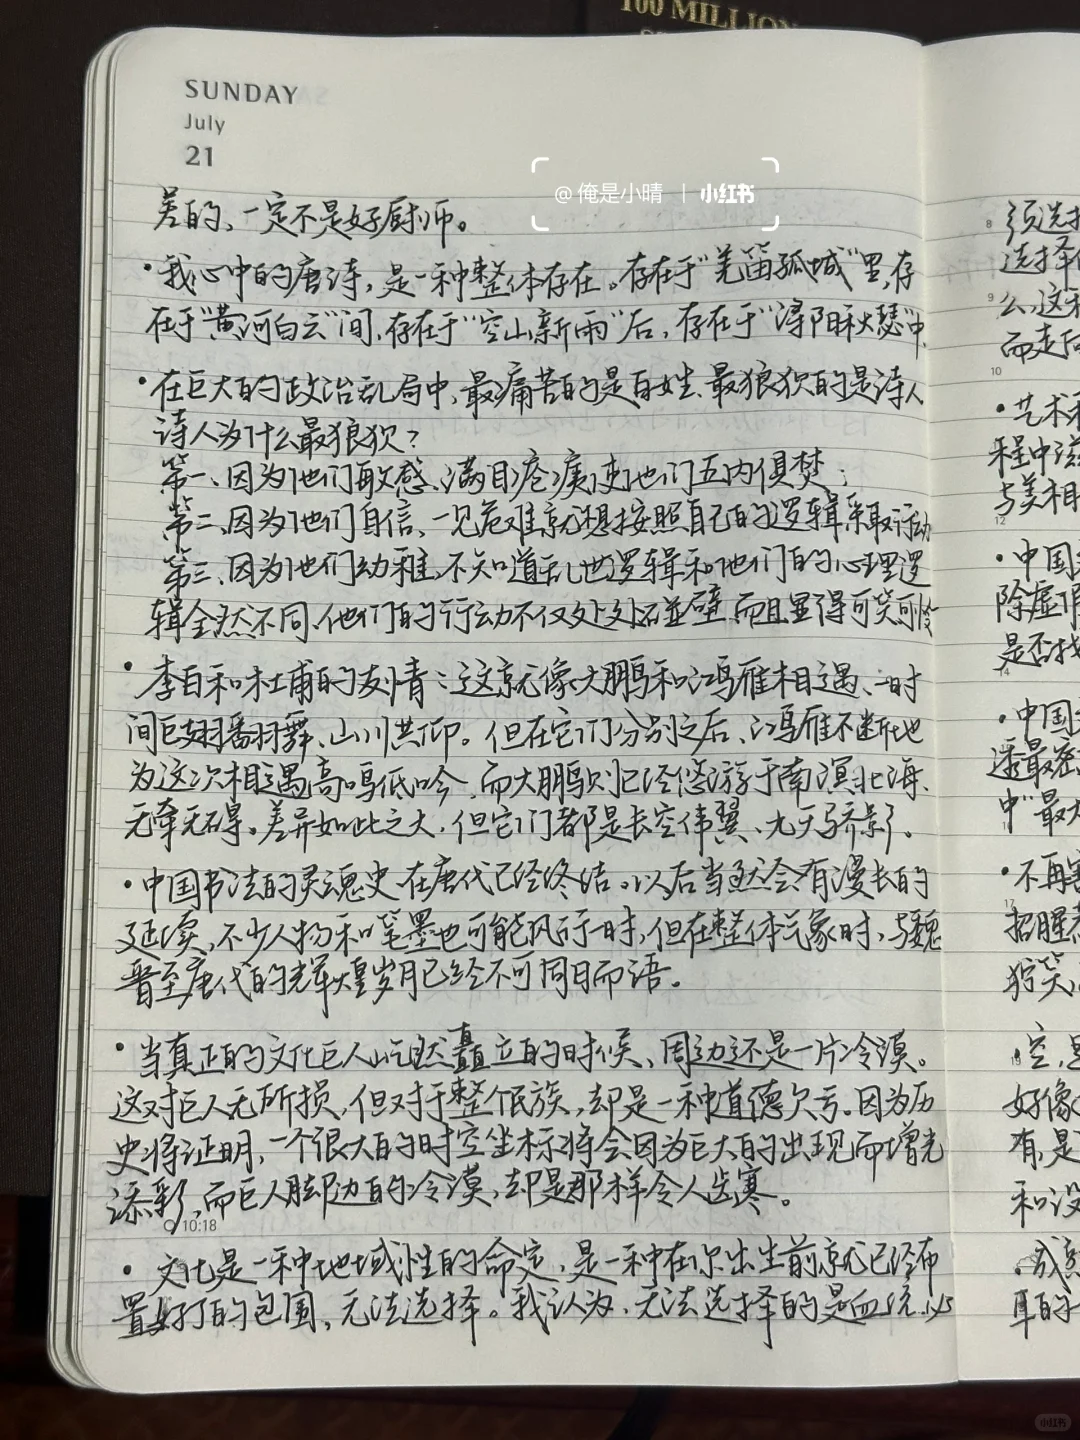 100 MILLION
SUNDAY
July
21
@俺是小晴 | 小红书
差的、一定不是好厨师。
·我心中的唐诗,是一种整体存在。存在于“羌笛孤城”里,存
在于“黄河白云”间,存在于“空山新雨”后,存在于“浔阳秋瑟”中
·在巨大的政治乱局中,最痛苦的是百姓、最狼狈的是诗人
诗人为什么最狼狈?
第一、因为他们敏感、满目疮痍使他们五内俱焚;
第二、因为他们自信、一见危难就想按照自己的逻辑采取行动
第三、因为他们幼稚,不知道乱世逻辑和他们的心理逻
辑全然不同、他们的行动不仅处处碰壁 而且显得可笑可怜
·李白和杜甫的友情:这就像大鹏和鸿雁相遇、一时
间巨翅翻舞、山川共仰。但在它们分别之后、鸿雁不断地
为这次相遇高鸣低吟,而大鹏则已经悠游于南溟北海、
无牵无碍。差异如此之大,但它们都是长空伟翼、九天骄影。
·中国书法的灵魂史 在唐代已经终结。以后当然会有漫长的
延续,不少人物和笔墨也可能风行一时,但在整体气象时,与魏
晋至唐代的辉煌岁月已经不可同日而语。
·当真正的文化巨人屹然矗立的时候、周边还是一片冷漠。
这对巨人无所损,但对于整个民族,却是一种道德欠亏。因为历
史将证明,一个很大的时空坐标将会因为巨大的出现而增光
添彩、而巨人脚边的冷漠,却是那样令人齿寒。
10:18
·文化是一种地域性的命定,是一种在你出生前就已经布
置好了的包围,无法选择。我认为、无法选择的是血统、必
8 须选择
选择
9 么,这
而走
10
·艺术
程中
与美相
12
·中国
除虚
是否找
14
·中国
透最
中“最大
·不再
17
招
狞笑
空,
好像
有,是
和没
·成熟
耳的
小红书